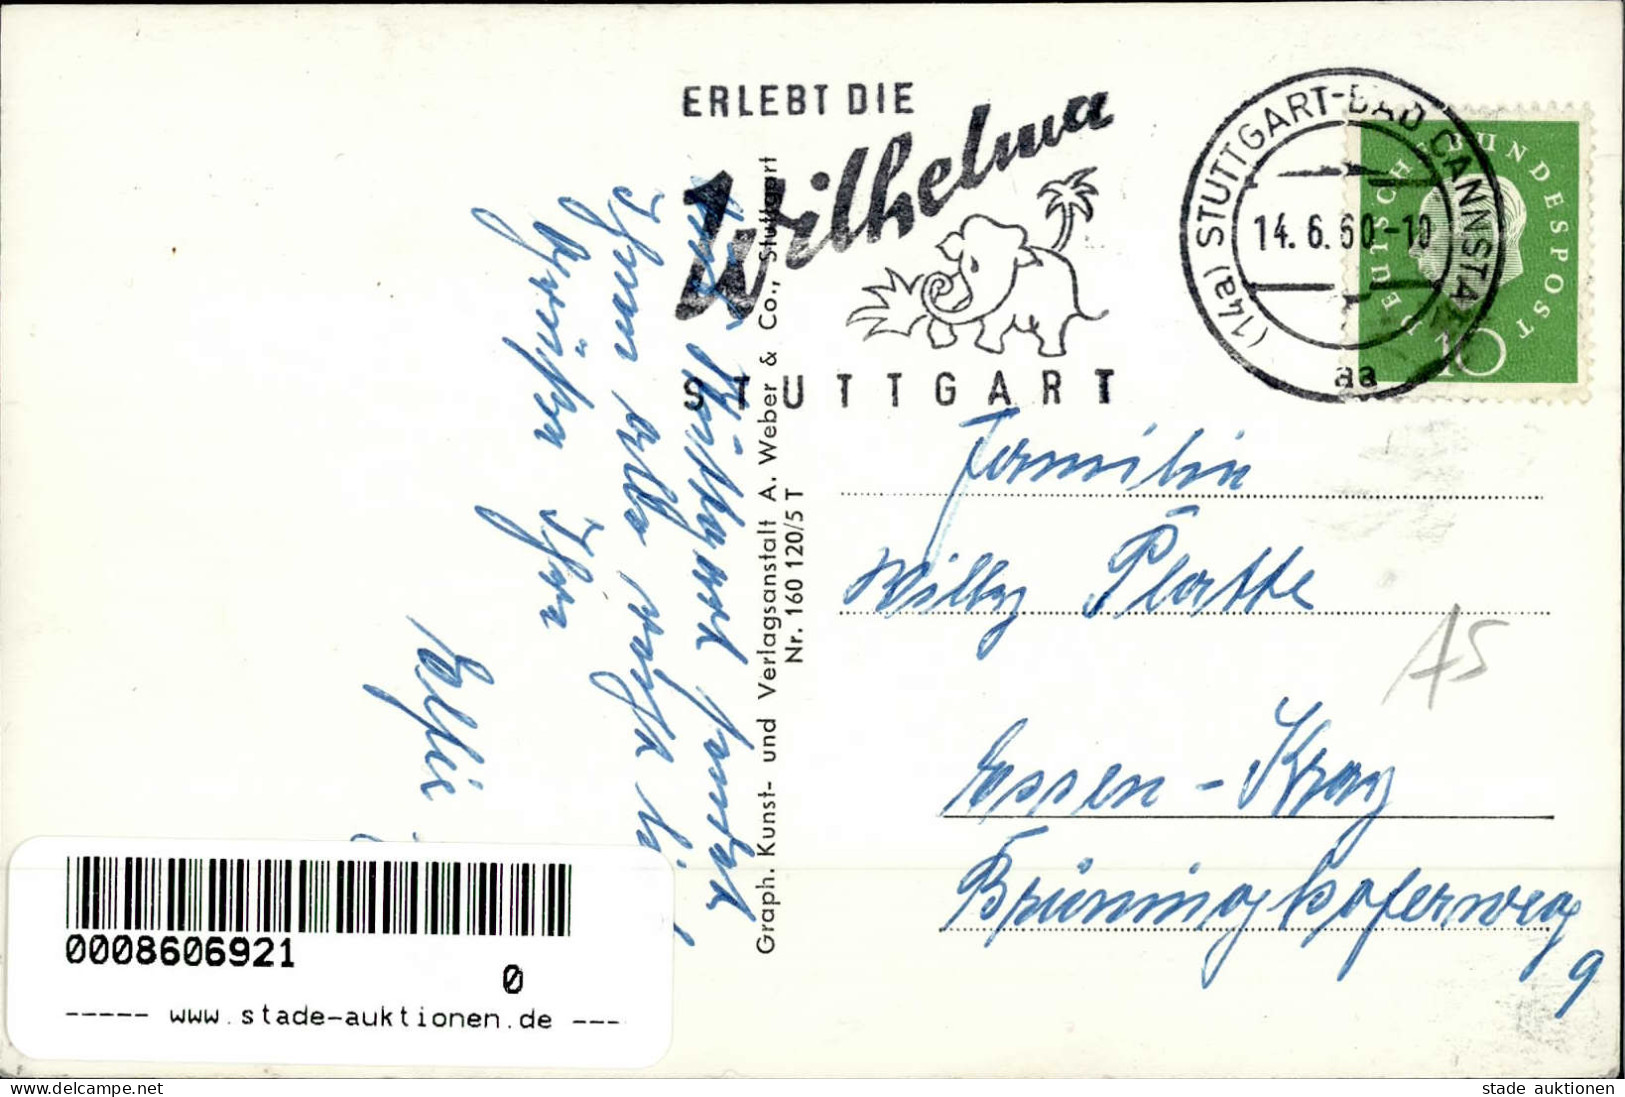 ERLEBT DIE
Wilhelma
STUTTGART
(14a) STUTTGART-BAD CANNSTATT
14. 6. 60-10
aa
DEUTSCHE BUNDESPOST
10
Familie
Willy Platte
Essen-Kray
Brüninghoferweg
9
AS
Graph. Kunst- und Verlagsanstalt A. Weber & Co., Stuttgart
Nr. 160 120/5 T
Ihnen alle recht
Grüßen Ihre
0008606921
0
----- www.stade-auktionen.de ---
www.delcampe.net
stade auktionen